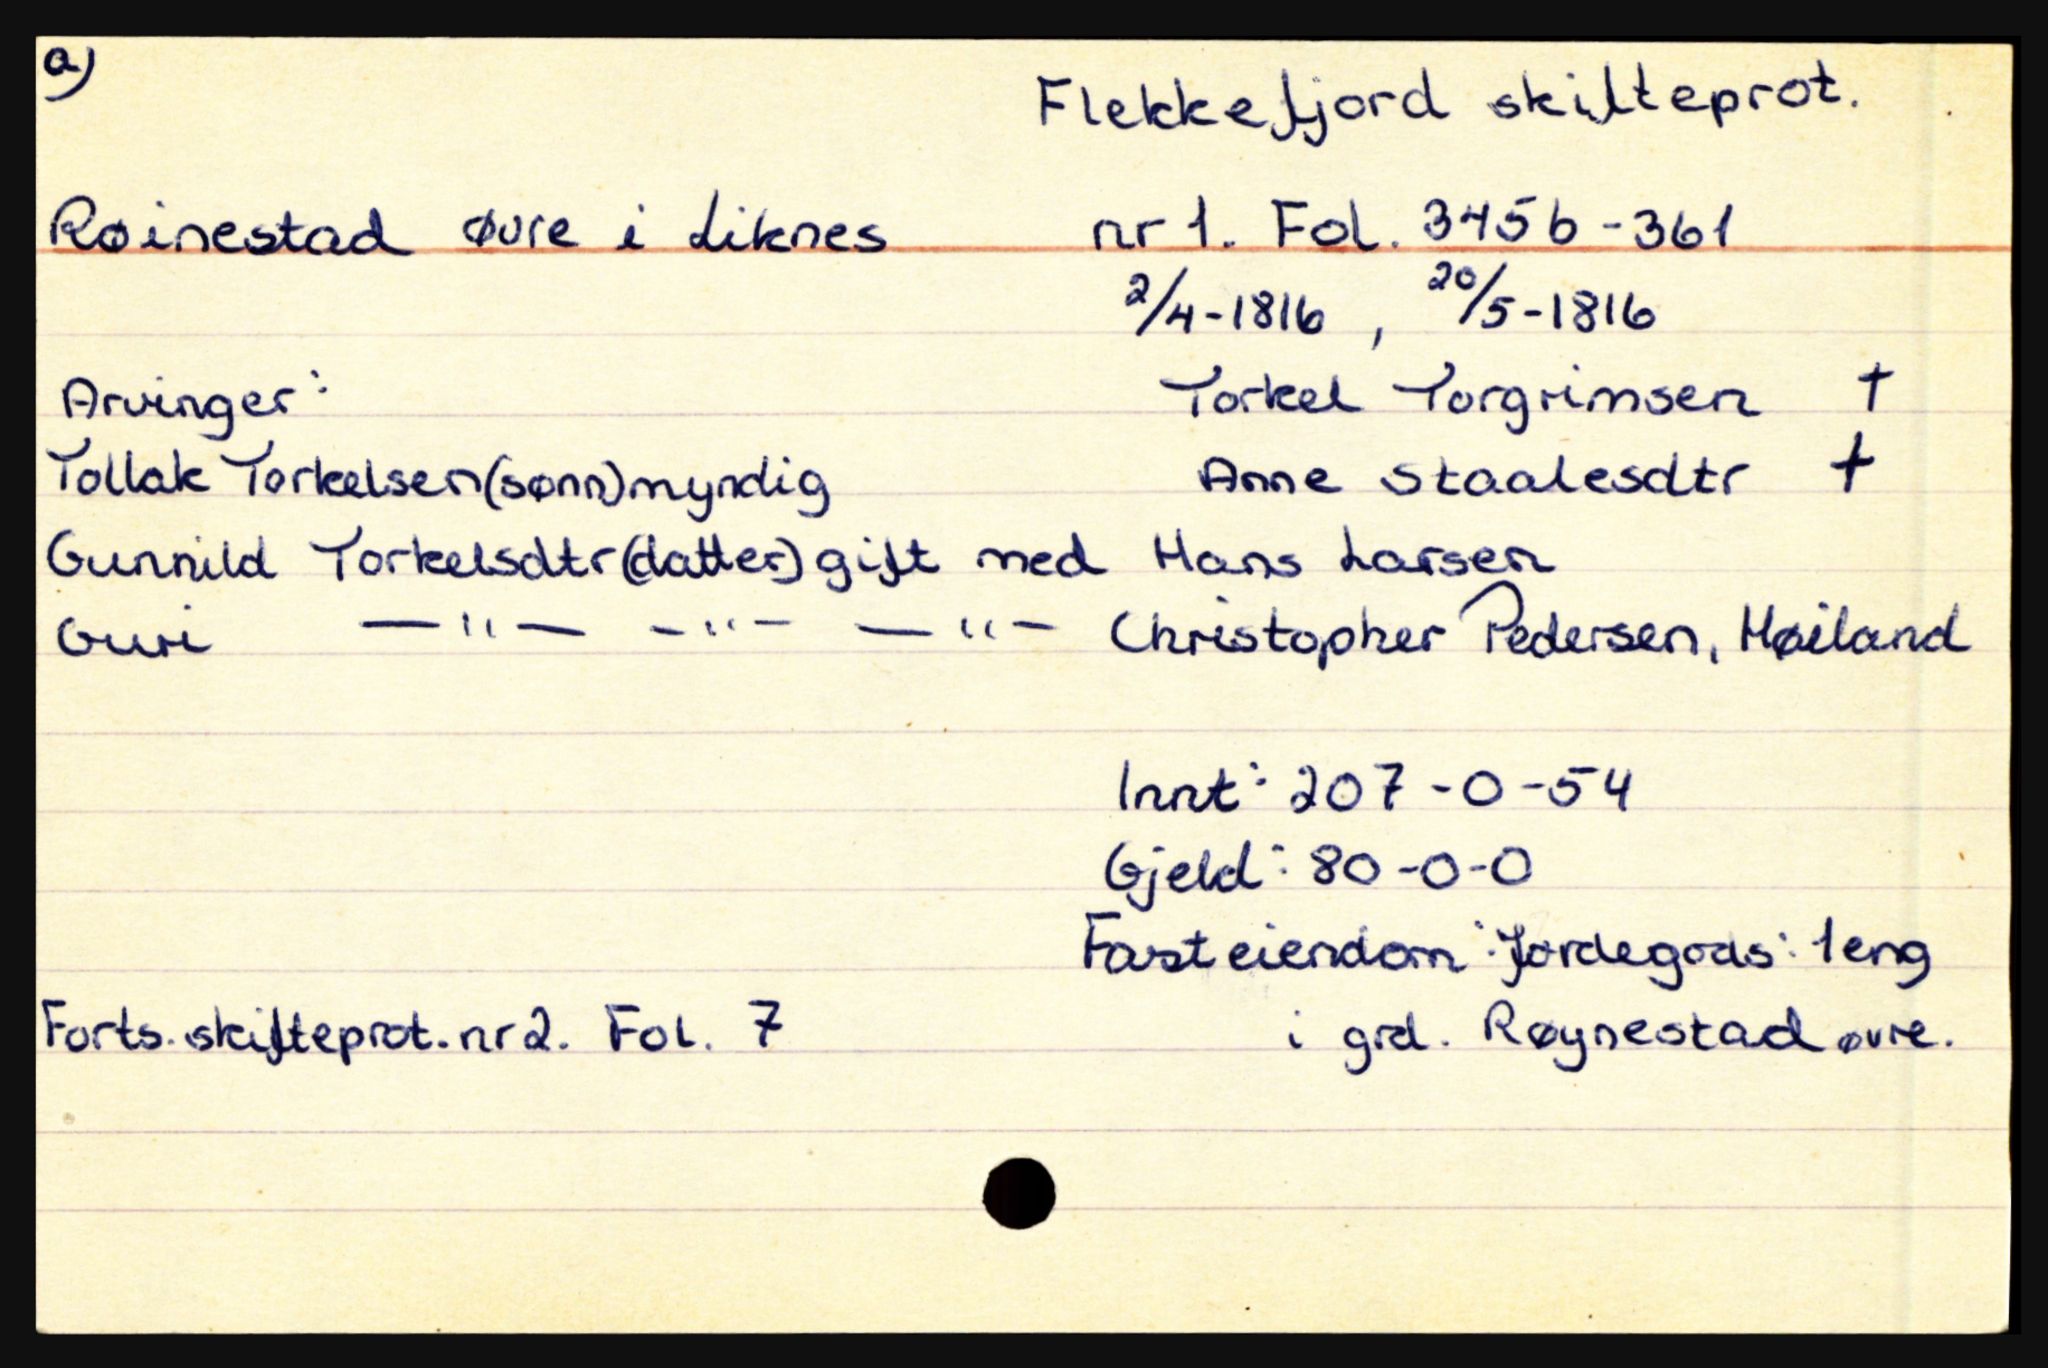 a)
Flekkefjord skifteprot.
Røinestad øvre i Liknes nr 1. Fol. 345b-361
2/4-1816, 20/5-1816
Arvinger: Torkel Torgrimsen †
Tollak Torkelsen (sønn) myndig Anne Staalesdtr †
Gunnild Torkelsdtr (datter) gift med Hans Larsen
Guri —"— -"- —"- Christopher Pedersen, Høiland
Innt: 207-0-54
Gjeld: 80-0-0
Fast eiendom: Jordegods: 1 eng
Forts. skifteprot. nr 2. Fol. 7 i grd. Røynestad øvre.